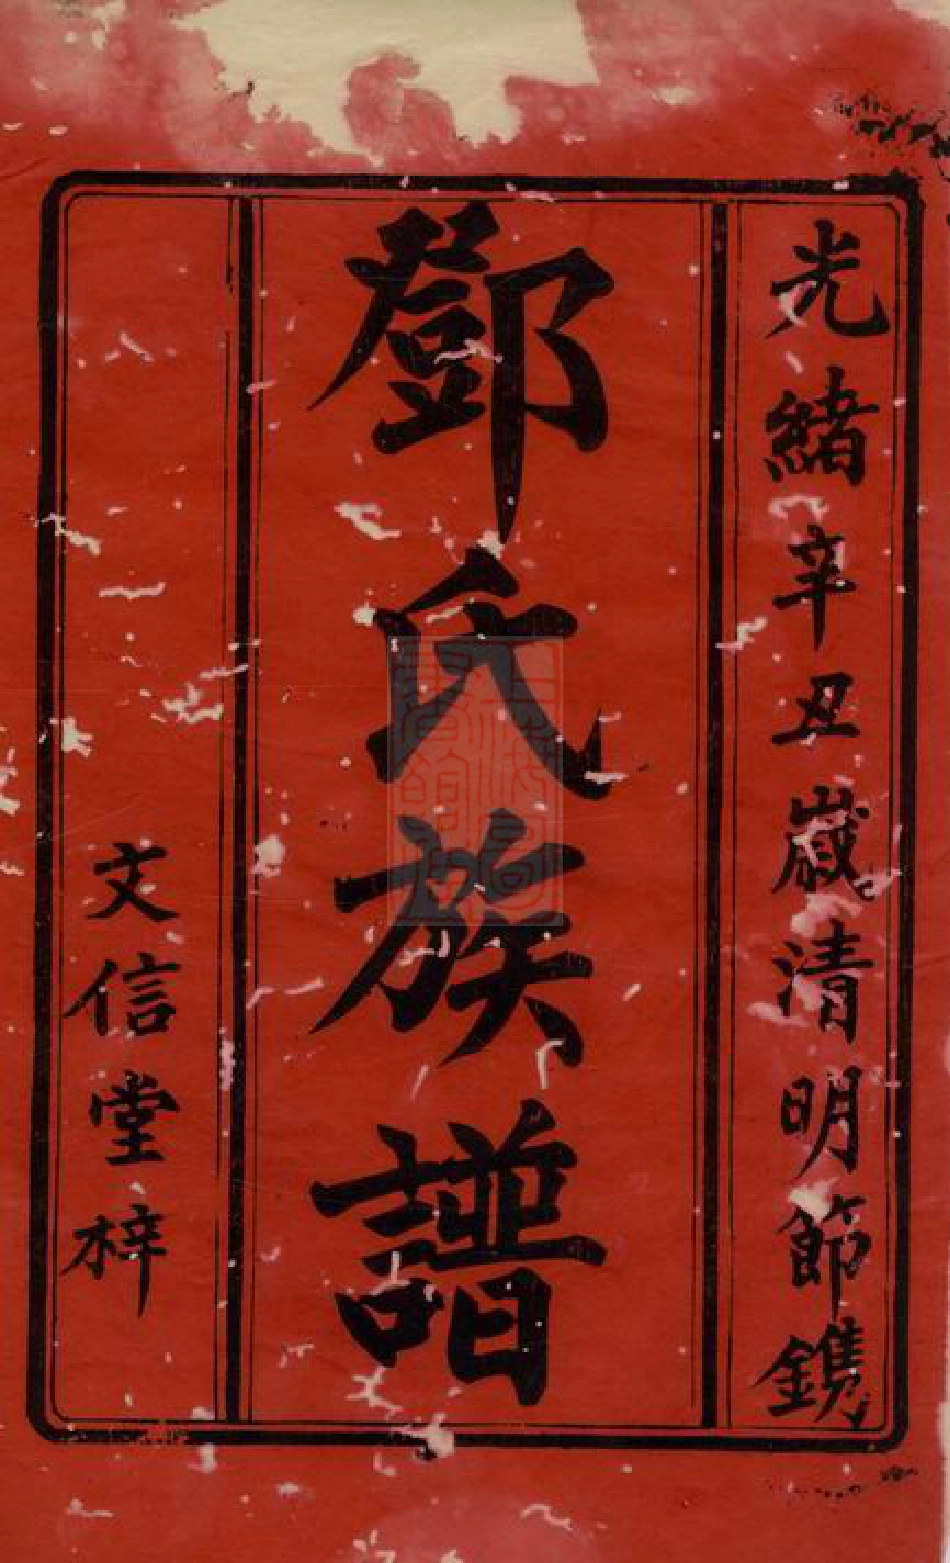 光緒辛丑歲清明節鐫
鄧氏族譜
文信堂梓